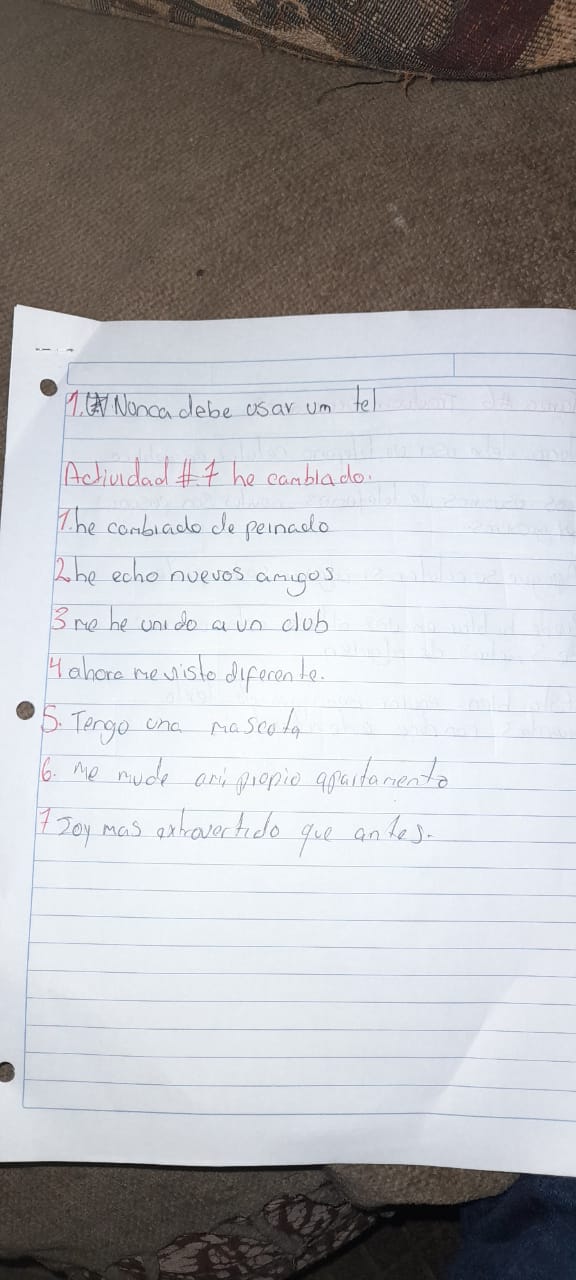 1. Nonca debe usar um tel
Actividad #.7 he cambiado.
1. he combiado de peinado
2 he echo nuevos amigos
3 me he unido a un club
4 ahora me visto diferente.
5. Tengo una mascota
6. me mude ami propio apartamento
7 Soy mas extrovertido que antes.